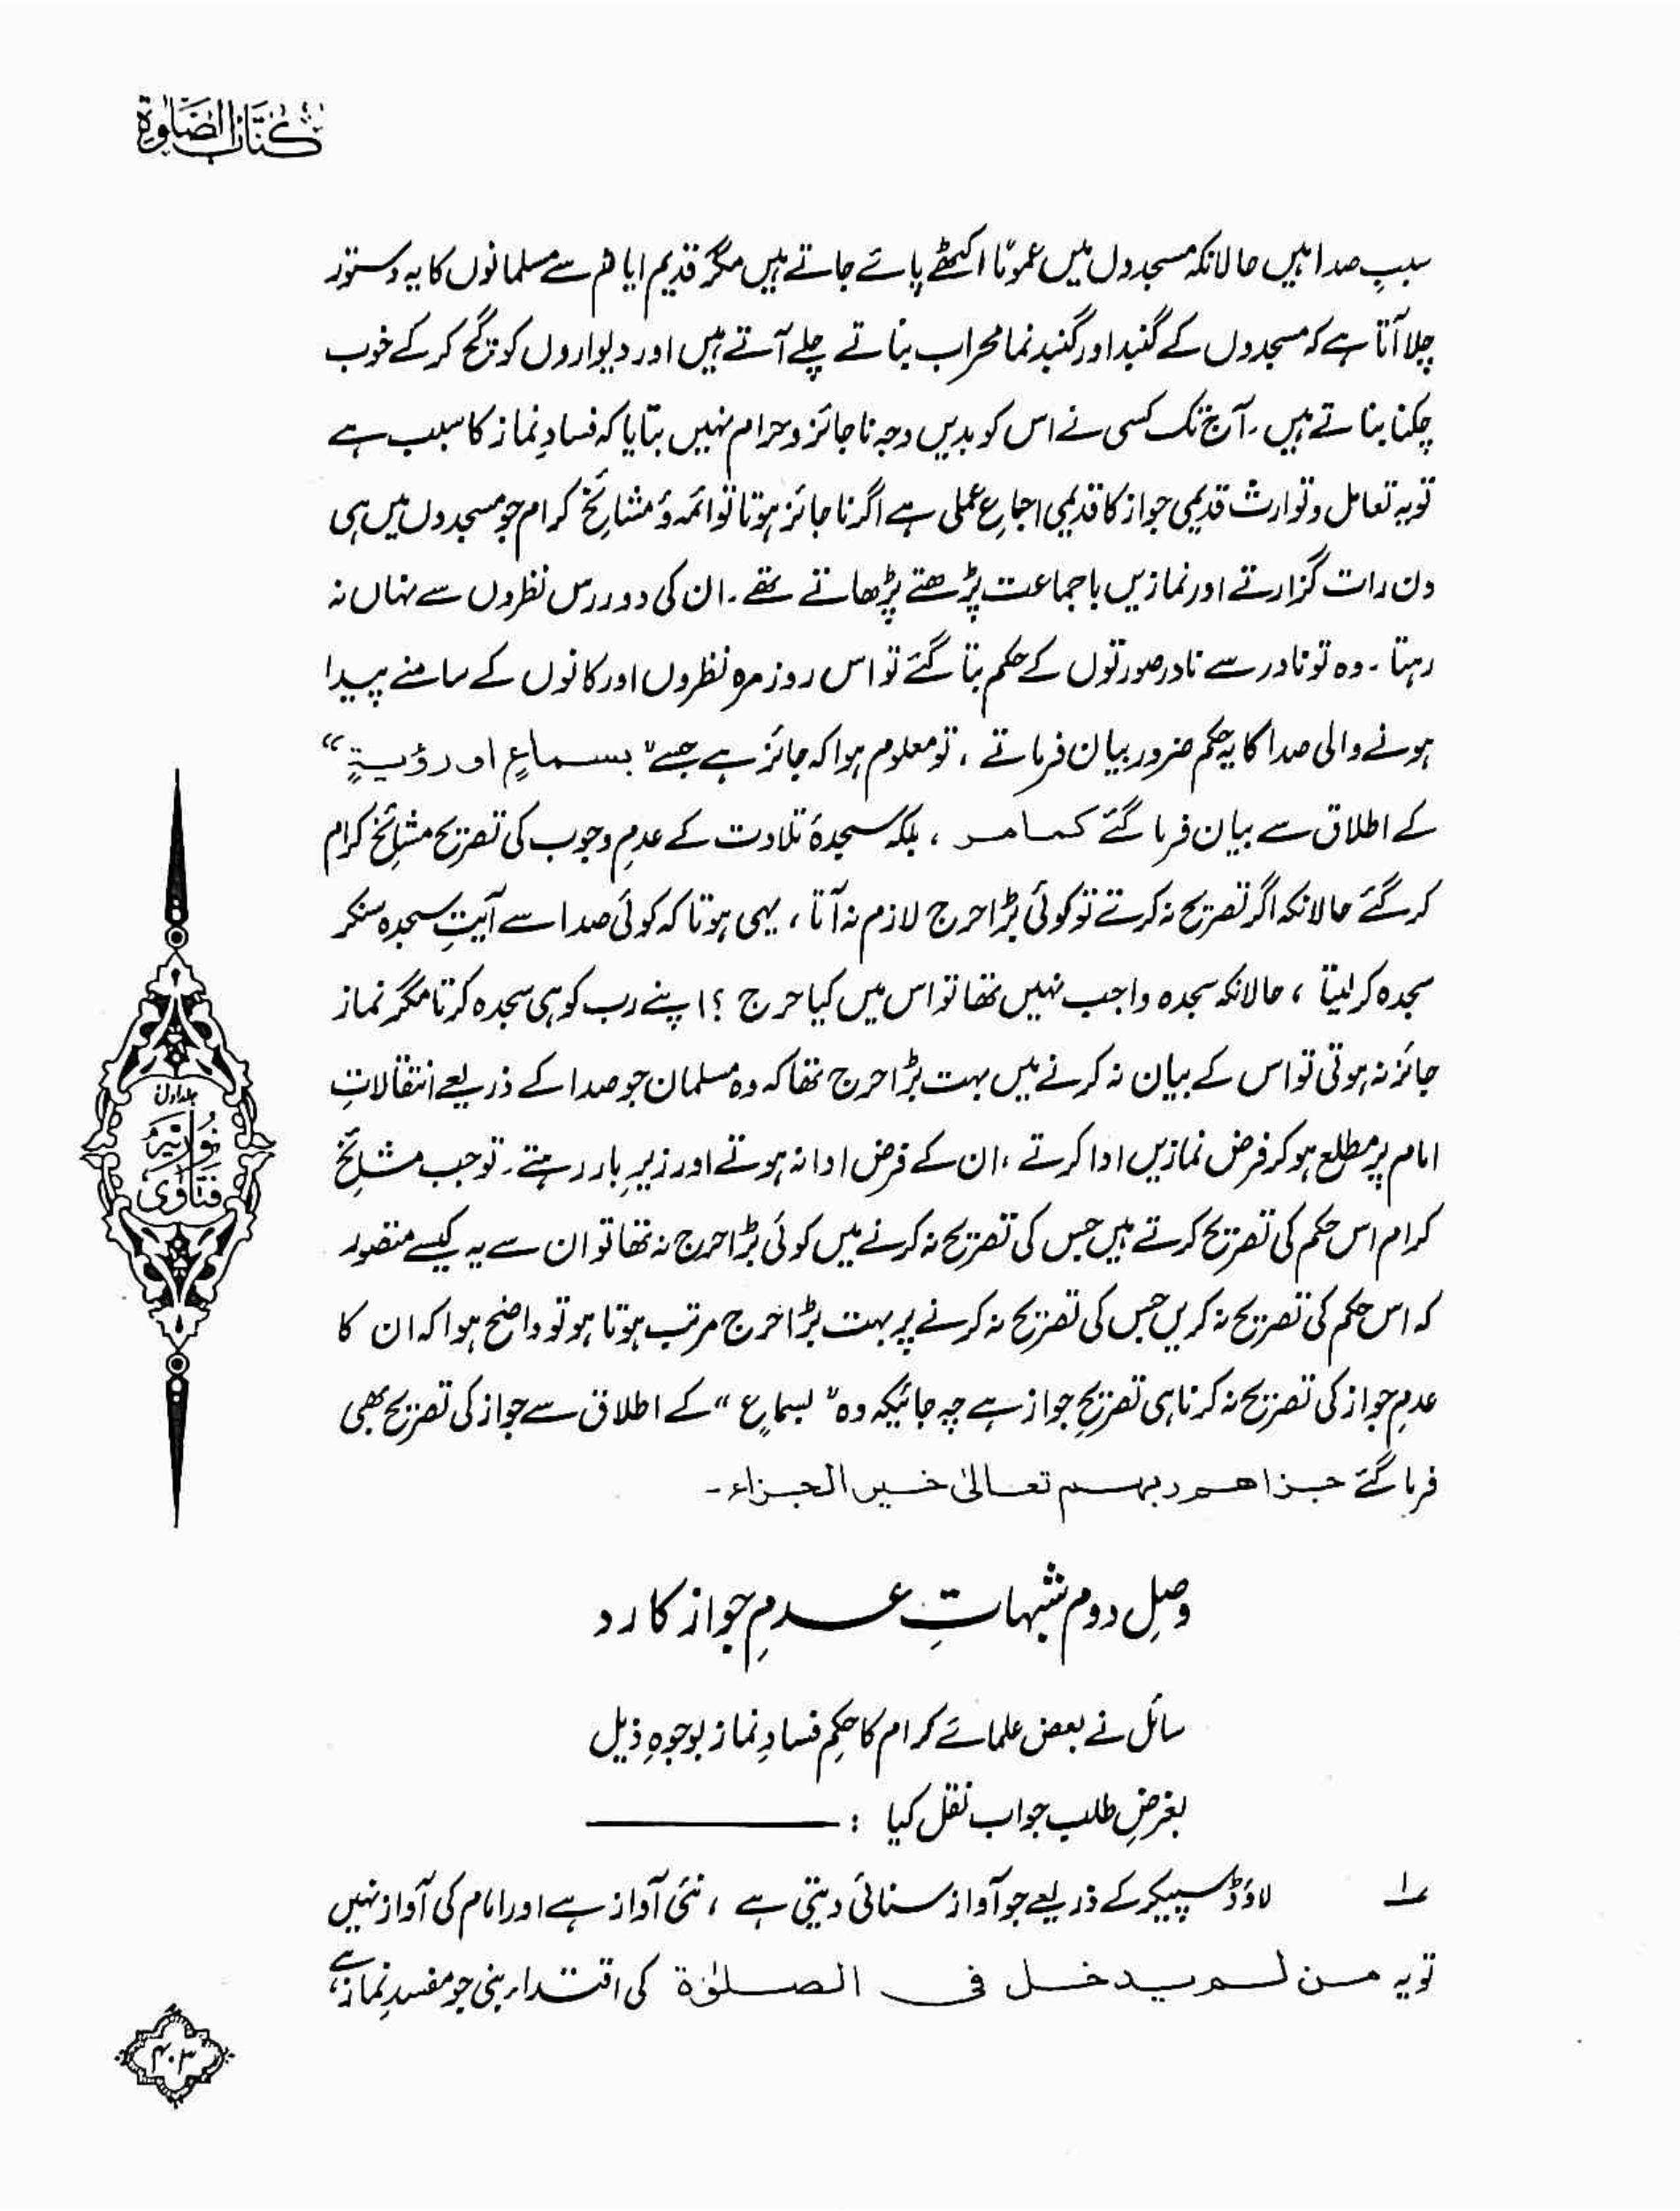 كتاب الصلوة
سببِ صدا ہیں حالانکہ مسجدوں میں عمومًا اکٹھے پائے جاتے ہیں مگر قدیم ایام سے مسلمانوں کا یہ دستور
چلا آتا ہے کہ مسجدوں کے گنبد اور گنبد نما محراب بناتے چلے آتے ہیں اور دیواروں کو گچ کر کے خوب
چکنا بناتے ہیں۔ آج تک کسی نے اس کو بدیں وجہ ناجائز و حرام نہیں بتایا کہ فسادِ نماز کا سبب ہے
تو یہ تعامل و توارث قدیمی جواز کا قدیمی اجماعِ عملی ہے اگر ناجائز ہوتا تو ائمہ و مشائخ کرام جو مسجدوں میں ہی
دن رات گزارتے اور نمازیں باجماعت پڑھتے پڑھاتے تھے۔ ان کی دور رس نظروں سے نہاں نہ
رہتا۔ وہ تو نادر سے نادر صورتوں کے حکم بتا گئے تو اس روز مرہ نظروں اور کانوں کے سامنے پیدا
ہونے والی صدا کا یہ حکم ضرور بیان فرماتے، تو معلوم ہوا کہ جائز ہے جسے "بسماعٍ او رؤیۃٍ"
کے اطلاق سے بیان فرما گئے کما مر، بلکہ سجدۂ تلاوت کے عدمِ وجوب کی تصریح مشائخ کرام
کر گئے حالانکہ اگر تصریح نہ کرتے تو کوئی بڑا حرج لازم نہ آتا، یہی ہوتا کہ کوئی صدا سے آیتِ سجدہ سنکر
سجدہ کر لیتا، حالانکہ سجدہ واجب نہیں تھا تو اس میں کیا حرج؟ اپنے رب کو ہی سجدہ کرتا مگر نماز
جائز نہ ہوتی تو اس کے بیان نہ کرنے میں بہت بڑا حرج تھا کہ وہ مسلمان جو صدا کے ذریعے انتقالاتِ
امام پر مطلع ہو کر فرض نمازیں ادا کرتے، ان کے فرض ادا نہ ہوتے اور زیرِ بار رہتے۔ تو جب مشائخ
کرام اس حکم کی تصریح کرتے ہیں جس کی تصریح نہ کرنے میں کوئی بڑا حرج نہ تھا تو ان سے یہ کیسے متصور
کہ اس حکم کی تصریح نہ کریں جس کی تصریح نہ کرنے پر بہت بڑا حرج مرتب ہوتا ہو تو واضح ہوا کہ ان کا
عدمِ جواز کی تصریح نہ کرنا ہی تصریحِ جواز ہے چہ جائیکہ وہ "بسماعٍ" کے اطلاق سے جواز کی تصریح بھی
فرما گئے جزاهم ربهم تعالیٰ خیر الجزاء۔
وصلِ دوم شبہاتِ عدمِ جواز کا رد
سائل نے بعض علمائے کرام کا حکمِ فسادِ نماز بوجوہِ ذیل
بغرضِ طلب جواب نقل کیا :
؁۱ لاؤڈ سپیکر کے ذریعے جو آواز سنائی دیتی ہے، نئی آواز ہے اور امام کی آواز نہیں
تو یہ من لم یدخل فی الصلوٰۃ کی اقتداء بنی جو مفسدِ نماز ہے،
جلد اول
نوریہ
فتاوی
۴۰۳